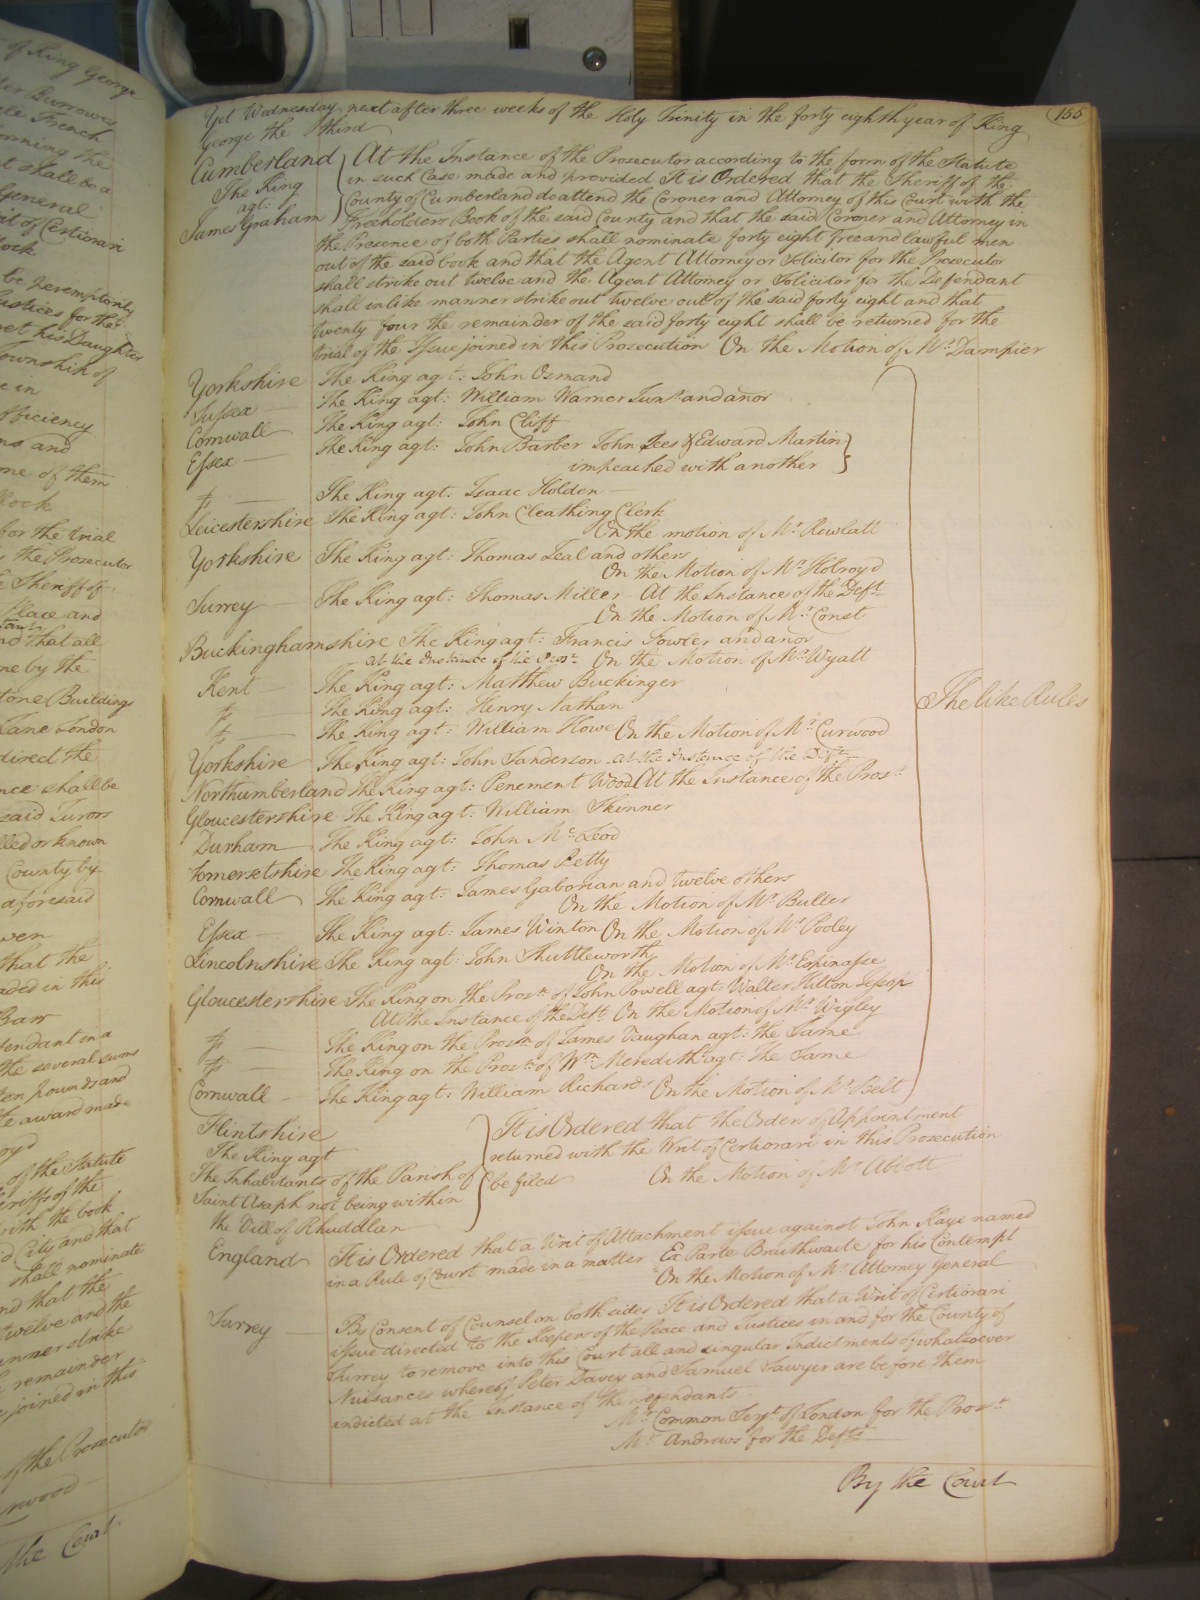 155
Yet Wednesday next after three weeks of the Holy Trinity in the forty eighth year of King
George the third
Cumberland
The King
agt:
James Graham
At the Instance of the Prosecutor according to the form of the Statute
in such Case made and provided It is Ordered that the Sheriff of the
County of Cumberland do attend the Coroner and Attorney of this Court with the
Freeholders Book of the said County and that the said Coroner and Attorney in
the Presence of both Parties shall nominate forty eight free and lawful men
out of the said book and that the Agent Attorney or Solicitor for the Prosecutor
shall strike out twelve and the Agent Attorney or Solicitor for the Defendant
shall in like manner strike out twelve out of the said forty eight and that
twenty four the remainder of the said forty eight shall be returned for the
trial of the Issue joined in this Prosecution On the Motion of Mr. Dampier
Yorkshire The King agt: John Osmand
Sussex The King agt: William Warner and anor
Cornwall The King agt: John Cliff
Essex The King agt: John Barber John Lees & Edward Martin
impeached with another
The King agt: Isaac Holden
Leicestershire The King agt: John Cleathing Clerk
On the motion of Mr. Rowlatt
Yorkshire The King agt: Thomas Teal and others
On the Motion of Mr. Holroyd
Surrey The King agt: Thomas Miller At the Instance of the Deft
On the Motion of Mr. Const
Buckinghamshire The King agt: Francis Fowler and anor
at the Instance of the Prosr. On the Motion of Mr. Wyatt
Kent The King agt: Matthew Buckinger
The King agt: Henry Nathan
The King agt: William Howe On the Motion of Mr. Curwood
Yorkshire The King agt: John Sanderson at the Instance of the Deft
Northumberland The King agt: Penement Wood At the Instance of the Prosr.
Gloucestershire The King agt: William Skinner
Durham The King agt: John Mc.Leod
Somersetshire The King agt: Thomas Petty
Cornwall The King agt: James Gaborian and twelve others
On the Motion of Mr. Buller
Essex The King agt: James Winton On the Motion of Mr. Pooley
Lincolnshire The King agt: John Shuttleworth
On the Motion of Mr. Espinasse
Gloucestershire The King on the Prosn. of John Powell agt: Walter Hilton Jessop
At the Instance of the Deft. On the Motion of Mr. Wigley
The King on the Prosn. of James Vaughan agt: the Same
The King on the Prosn. of Wm. Meredith agt: The Same
Cornwall The King agt: William Richards On the Motion of Mr. Belt
The like Rules
Flintshire
The King agt
The Inhabitants of the Parish of
Saint Asaph not being within
the Vill of Rhuddlan
It is Ordered that the Orders of Appointment
returned with the Writ of Certiorari in this Prosecution
be filed On the Motion of Mr. Abbott
England It is Ordered that a Writ of Attachment issue against John Kaye named
in a Rule of Court made in a matter Ex Parte Braithwaite for his Contempt
On the Motion of Mr. Attorney General
Surrey By Consent of Counsel on both sides It is Ordered that a Writ of Certiorari
issue directed to the Keepers of the Peace and Justices in and for the County of
Surrey to remove into this Court all and singular Indictments of whatsoever
Nuisances whereof Peter Davey and Samuel Sawyer are before them
indicted at the Instance of the Defendants
Mr. Common Serjt. of London for the Prosr.
Mr. Andrews for the Defts
By the Court
of King George
Burrowes
French
t shall be a
General
it of Certiorari
be peremptorily
Justices for the
his Daughter
Township of
in
and
one of them
for the trial
the Prosecutor
Sheriff of
Place and
and that all
me by the
Stone Buildings
Lane London
direct the
shall be
said Jurors
or known
County by
aforesaid
that the
in this
Barr
Defendant in a
the several sums
ten pounds and
award made
of the Statute
Sheriffs of the
with the book
City and that
shall nominate
and that the
twelve and the
manner strike
remainder
joined in this
of the Prosecutor
The Court